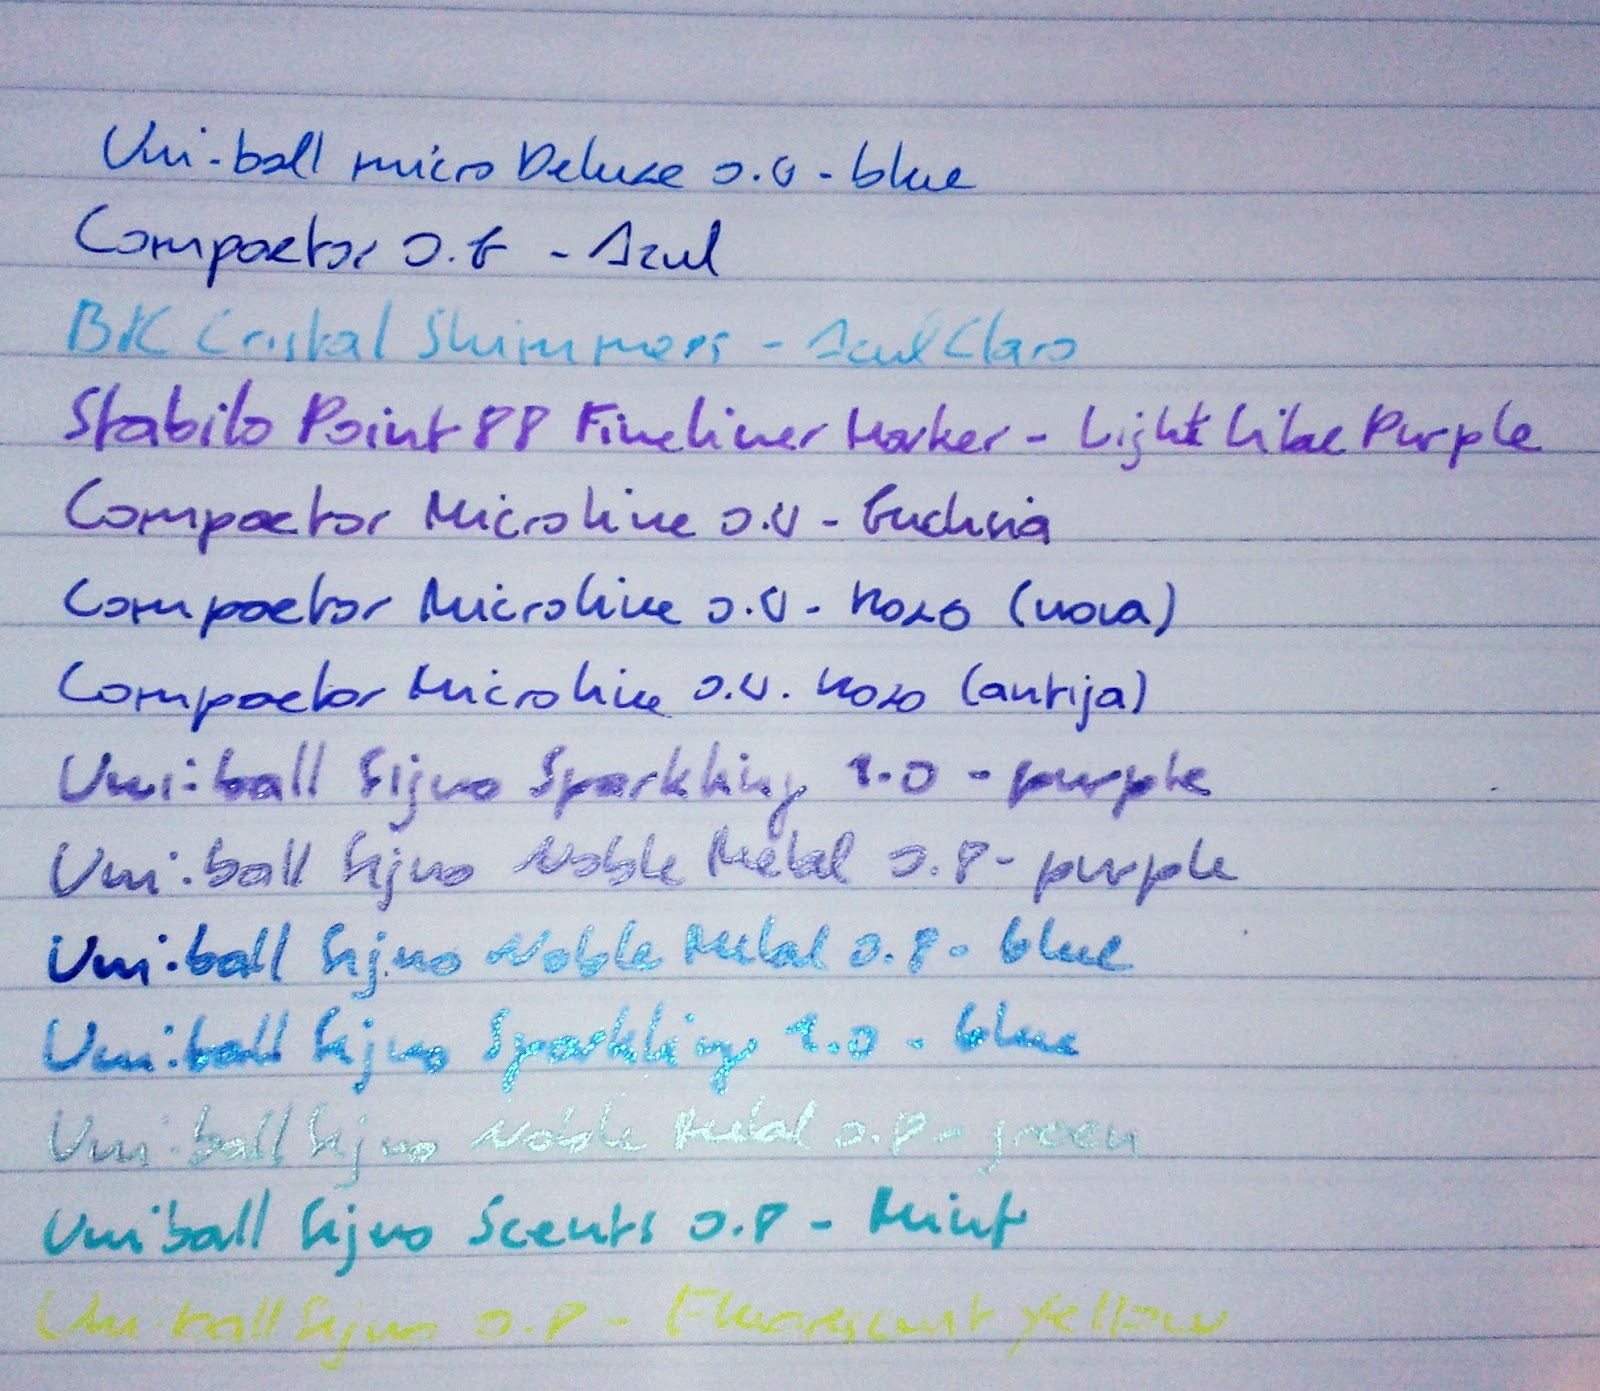 Uni-ball micro Deluxe 0.5 - blue
Compactor 0.7 - Azul
BIC Cristal Shimmers - Azul Claro
Stabilo Point 88 Fineliner Marker - Light Lilac Purple
Compactor Microline 0.4 - Fuchsia
Compactor Microline 0.4 - Roxo (nova)
Compactor Microline 0.4 - Roxo (antiga)
Uni-ball Signo Sparkling 1.0 - purple
Uni-ball Signo Noble Metal 0.8 - purple
Uni-ball Signo Noble Metal 0.8 - blue
Uni-ball Signo Sparkling 1.0 - blue
Uni-ball Signo Noble Metal 0.8 - green
Uniball Signo Scents 0.8 - Mint
Uni-ball Signo 0.8 - Fluorescent yellow